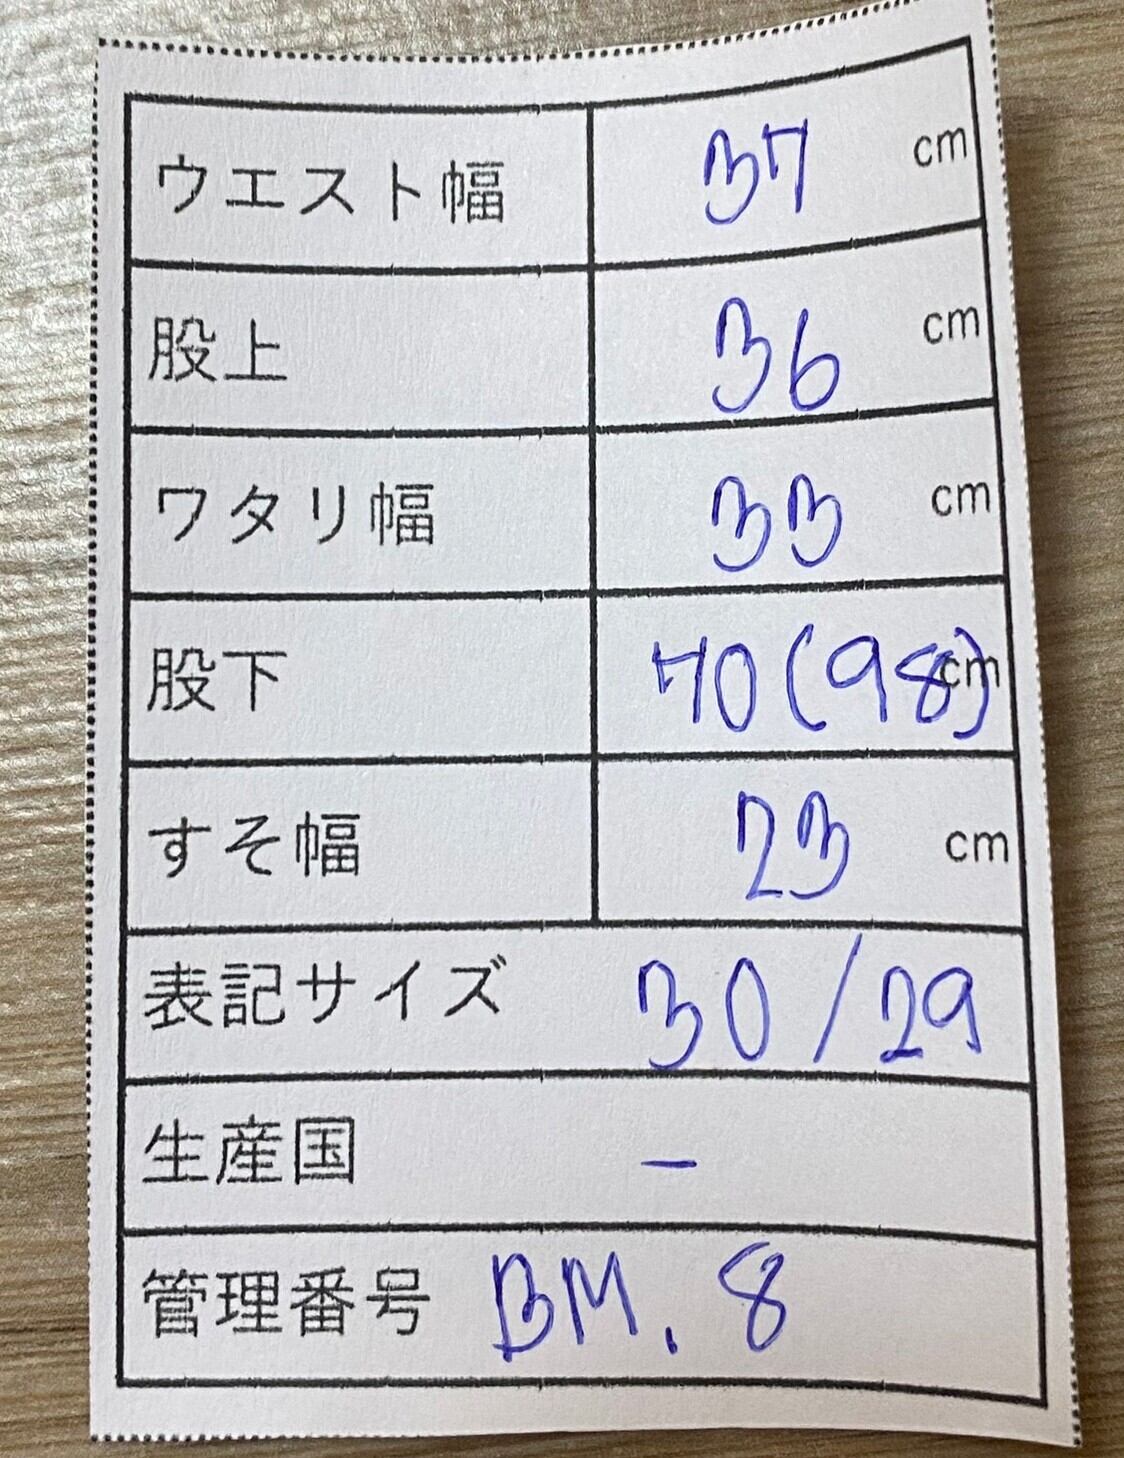 ウエスト幅 37 cm
股上 36 cm
ワタリ幅 33 cm
股下 70(98) cm
すそ幅 23 cm
表記サイズ 30/29
生産国 -
管理番号 BM. 8